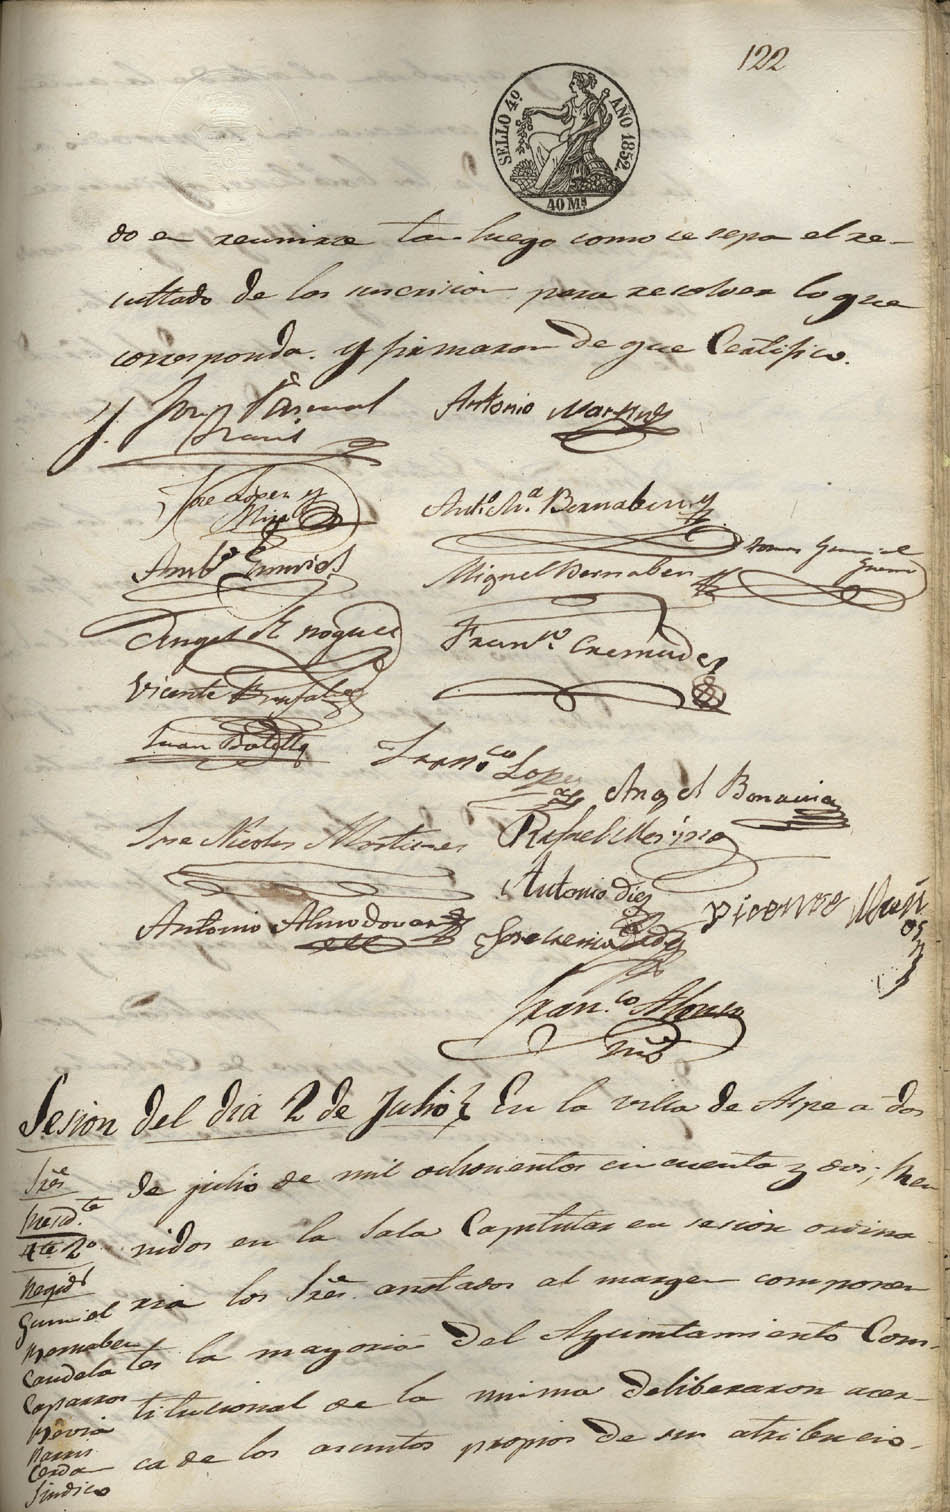 122
SELLO 4º AÑO 1852.
40 Ms
do en reunirse tan luego como se sepa el re-
sultado de los suscricion para resolver lo que
corresponda. y firmaron de que Certifico.
Antonio Martinez
Jose Lopez y
Mira
Antº Mª Bernabeu
Miguel Bernabeu
Franco. Cremades
Vicente
Juan Botella
Franco Lopez
Angel Bonavia
Jose Nicolas Martinez
Rafael
Antonio Diez
Vicente Muñoz
Antonio Almodovar
Franco. Alfonso
Sesion del dia 2 de Julio. En la villa de Aspe a dos
de julio de mil ochocientos cincuenta y dos; Reu
nidos en la Sala Capitular en sesion ordina
ria los Sres. anotados al margen componen
tes la mayoria del Ayuntamiento Cons-
titucional de la misma deliberaron acer-
ca de los asuntos propios de sus atribucio-
Sres
Presdte
Tte 2º
Regids
Gumiel
Bernabeu
Candela
Caparros
Pavia
Cerda
Sindico